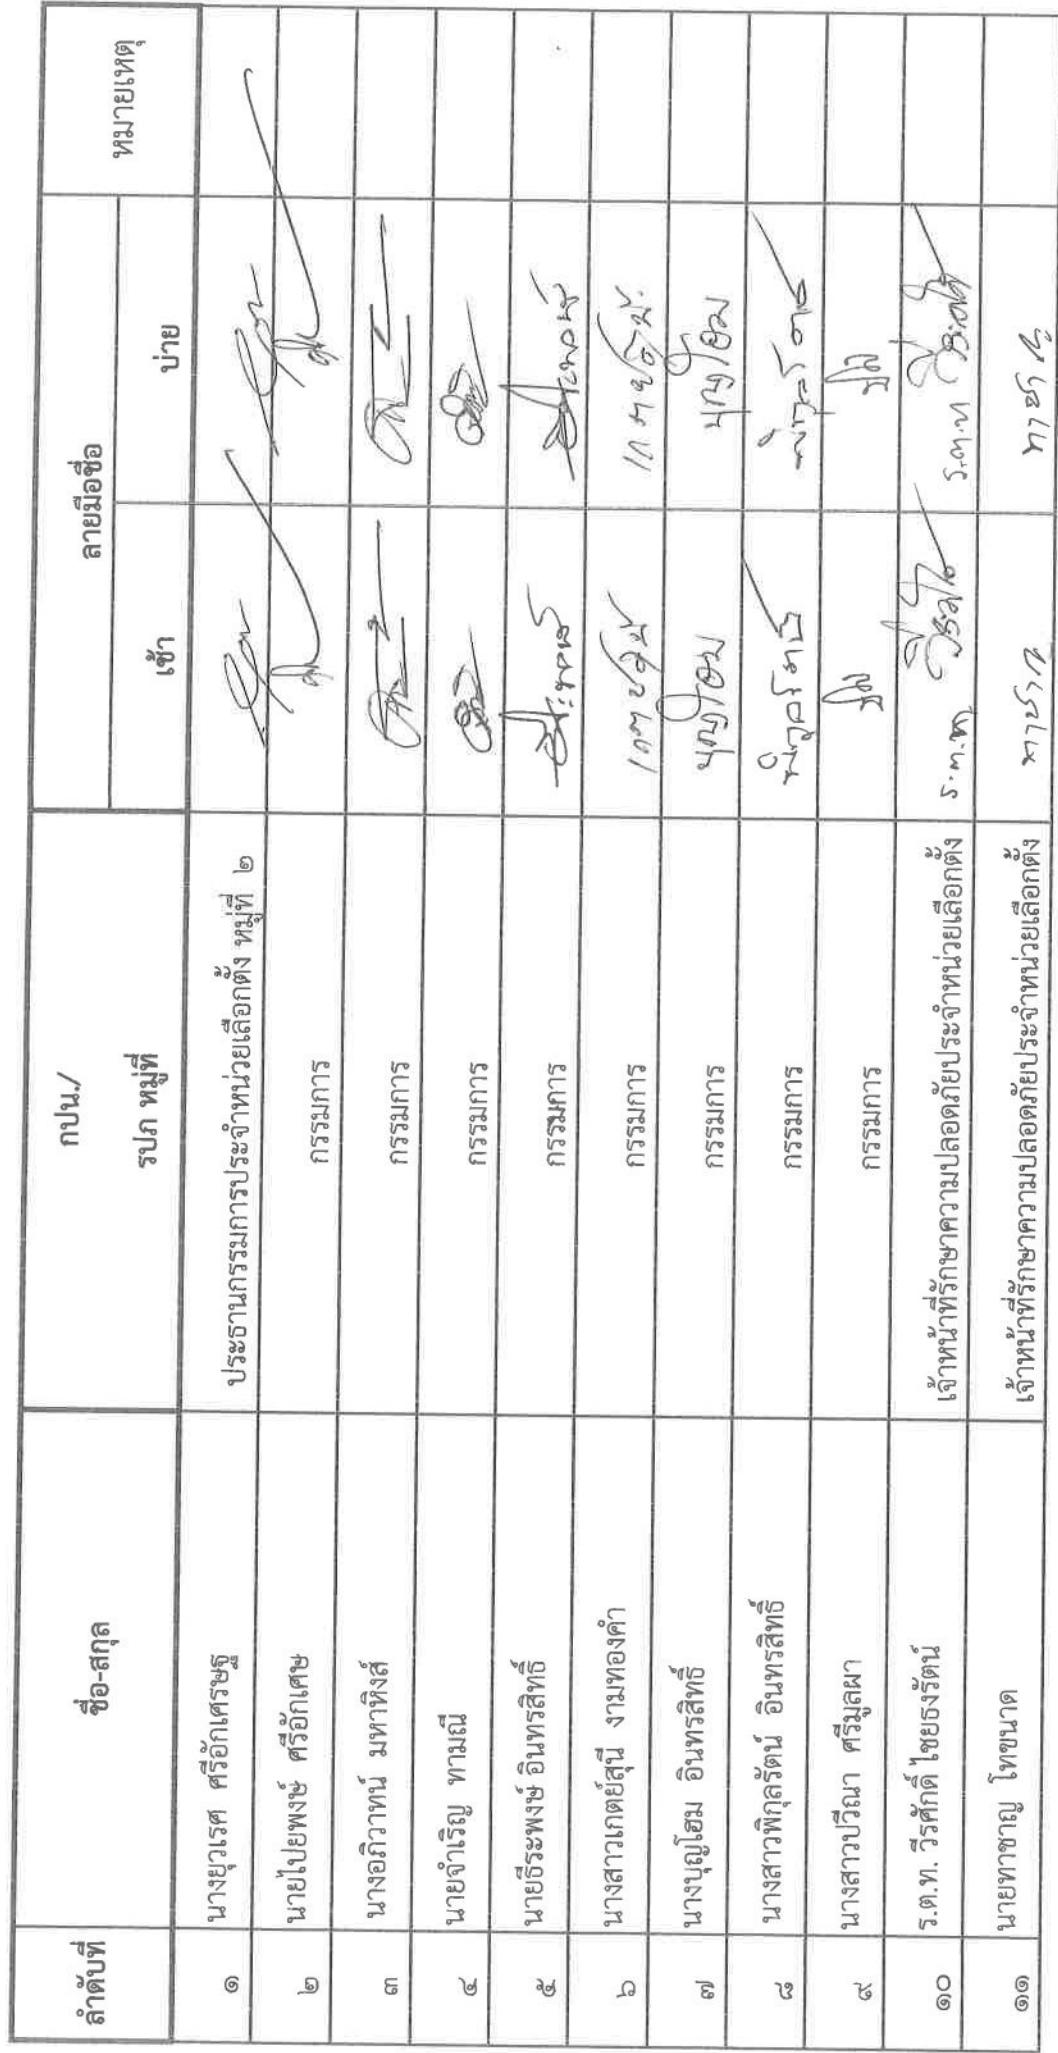 ลำดับที่ ชื่อ-สกุล กปน./ ลายมือชื่อ หมายเหตุ
รปภ หมู่ที่ เช้า บ่าย
๑ นางยุวเรศ ศรีอักเศรษฐ ประธานกรรมการประจำหน่วยเลือกตั้ง หมู่ที่ ๒
๒ นายไปยพงษ์ ศรีอักเศษ กรรมการ
๓ นางอภิวาทน์ มหาหิงส์ กรรมการ
๔ นายจำเริญ ทามณี กรรมการ
๕ นายธีระพงษ์ อินทรสิทธิ์ กรรมการ
๖ นางสาวเกตย์สุนี งามทองคำ กรรมการ
๗ นางบุญโฮม อินทรสิทธิ์ กรรมการ บุญโฮม บุญโฮม
๘ นางสาวพิกุลรัตน์ อินทรสิทธิ์ กรรมการ
๙ นางสาวปวีณา ศรีมูลผา กรรมการ
๑๐ ร.ต.ท. วีรศักดิ์ ไชยธงรัตน์ เจ้าหน้าที่รักษาความปลอดภัยประจำหน่วยเลือกตั้ง ร.ต.ท. ร.ต.ท
๑๑ นายทาชาญ โทขนาด เจ้าหน้าที่รักษาความปลอดภัยประจำหน่วยเลือกตั้ง ทาชาญ ทาชาญ